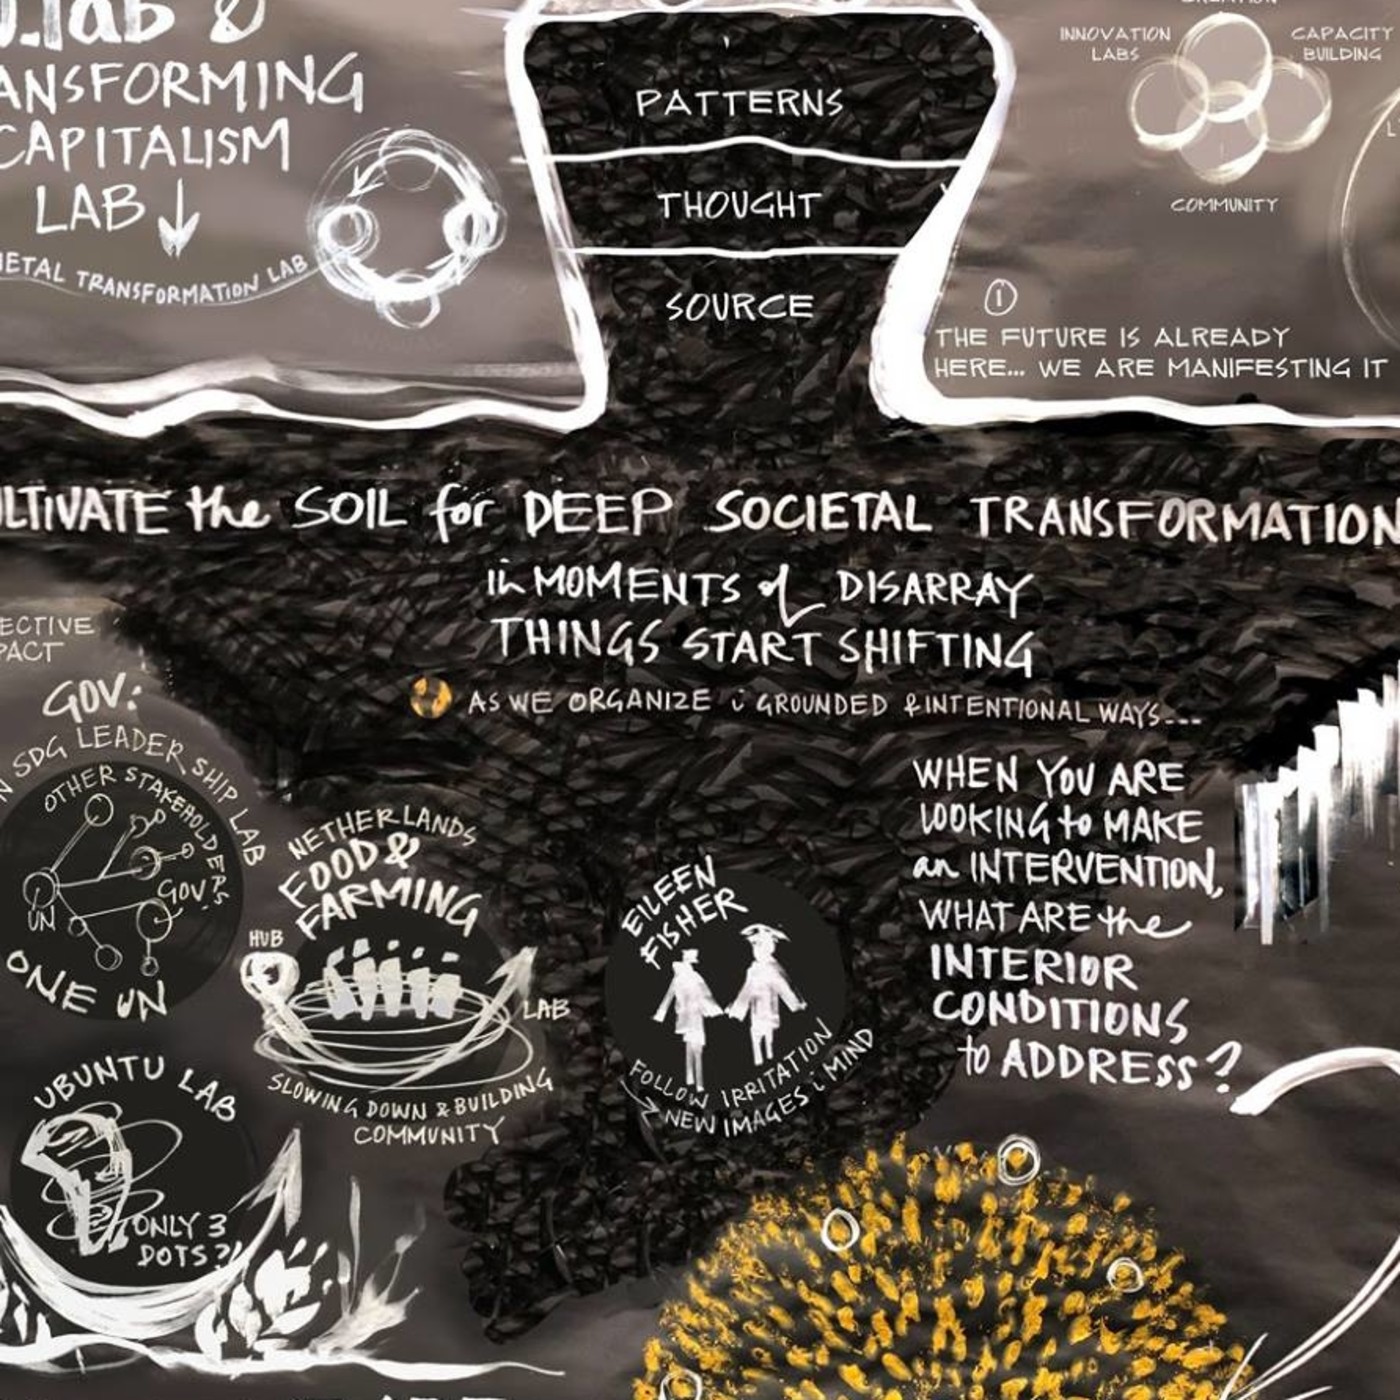 u.lab &
TRANSFORMING
CAPITALISM
LAB
SOCIETAL TRANSFORMATION LAB
PATTERNS
THOUGHT
SOURCE
INNOVATION
LABS
CAPACITY
BUILDING
COMMUNITY
1
THE FUTURE IS ALREADY
HERE... WE ARE MANIFESTING IT
CULTIVATE the SOIL for DEEP SOCIETAL TRANSFORMATION
in MOMENTS of DISARRAY
THINGS START SHIFTING
AS WE ORGANIZE i GROUNDED & INTENTIONAL WAYS...
GOV:
SDG LEADERSHIP LAB
OTHER STAKEHOLDERS
GOV.
UN
ONE UN
NETHERLANDS
FOOD &
FARMING
HUB
LAB
SLOWING DOWN & BUILDING
COMMUNITY
EILEEN
FISHER
FOLLOW IRRITATION
NEW IMAGES i MIND
WHEN YOU ARE
LOOKING to MAKE
an INTERVENTION,
WHAT ARE the
INTERIOR
CONDITIONS
to ADDRESS?
UBUNTU LAB
ONLY 3
DOTS?!